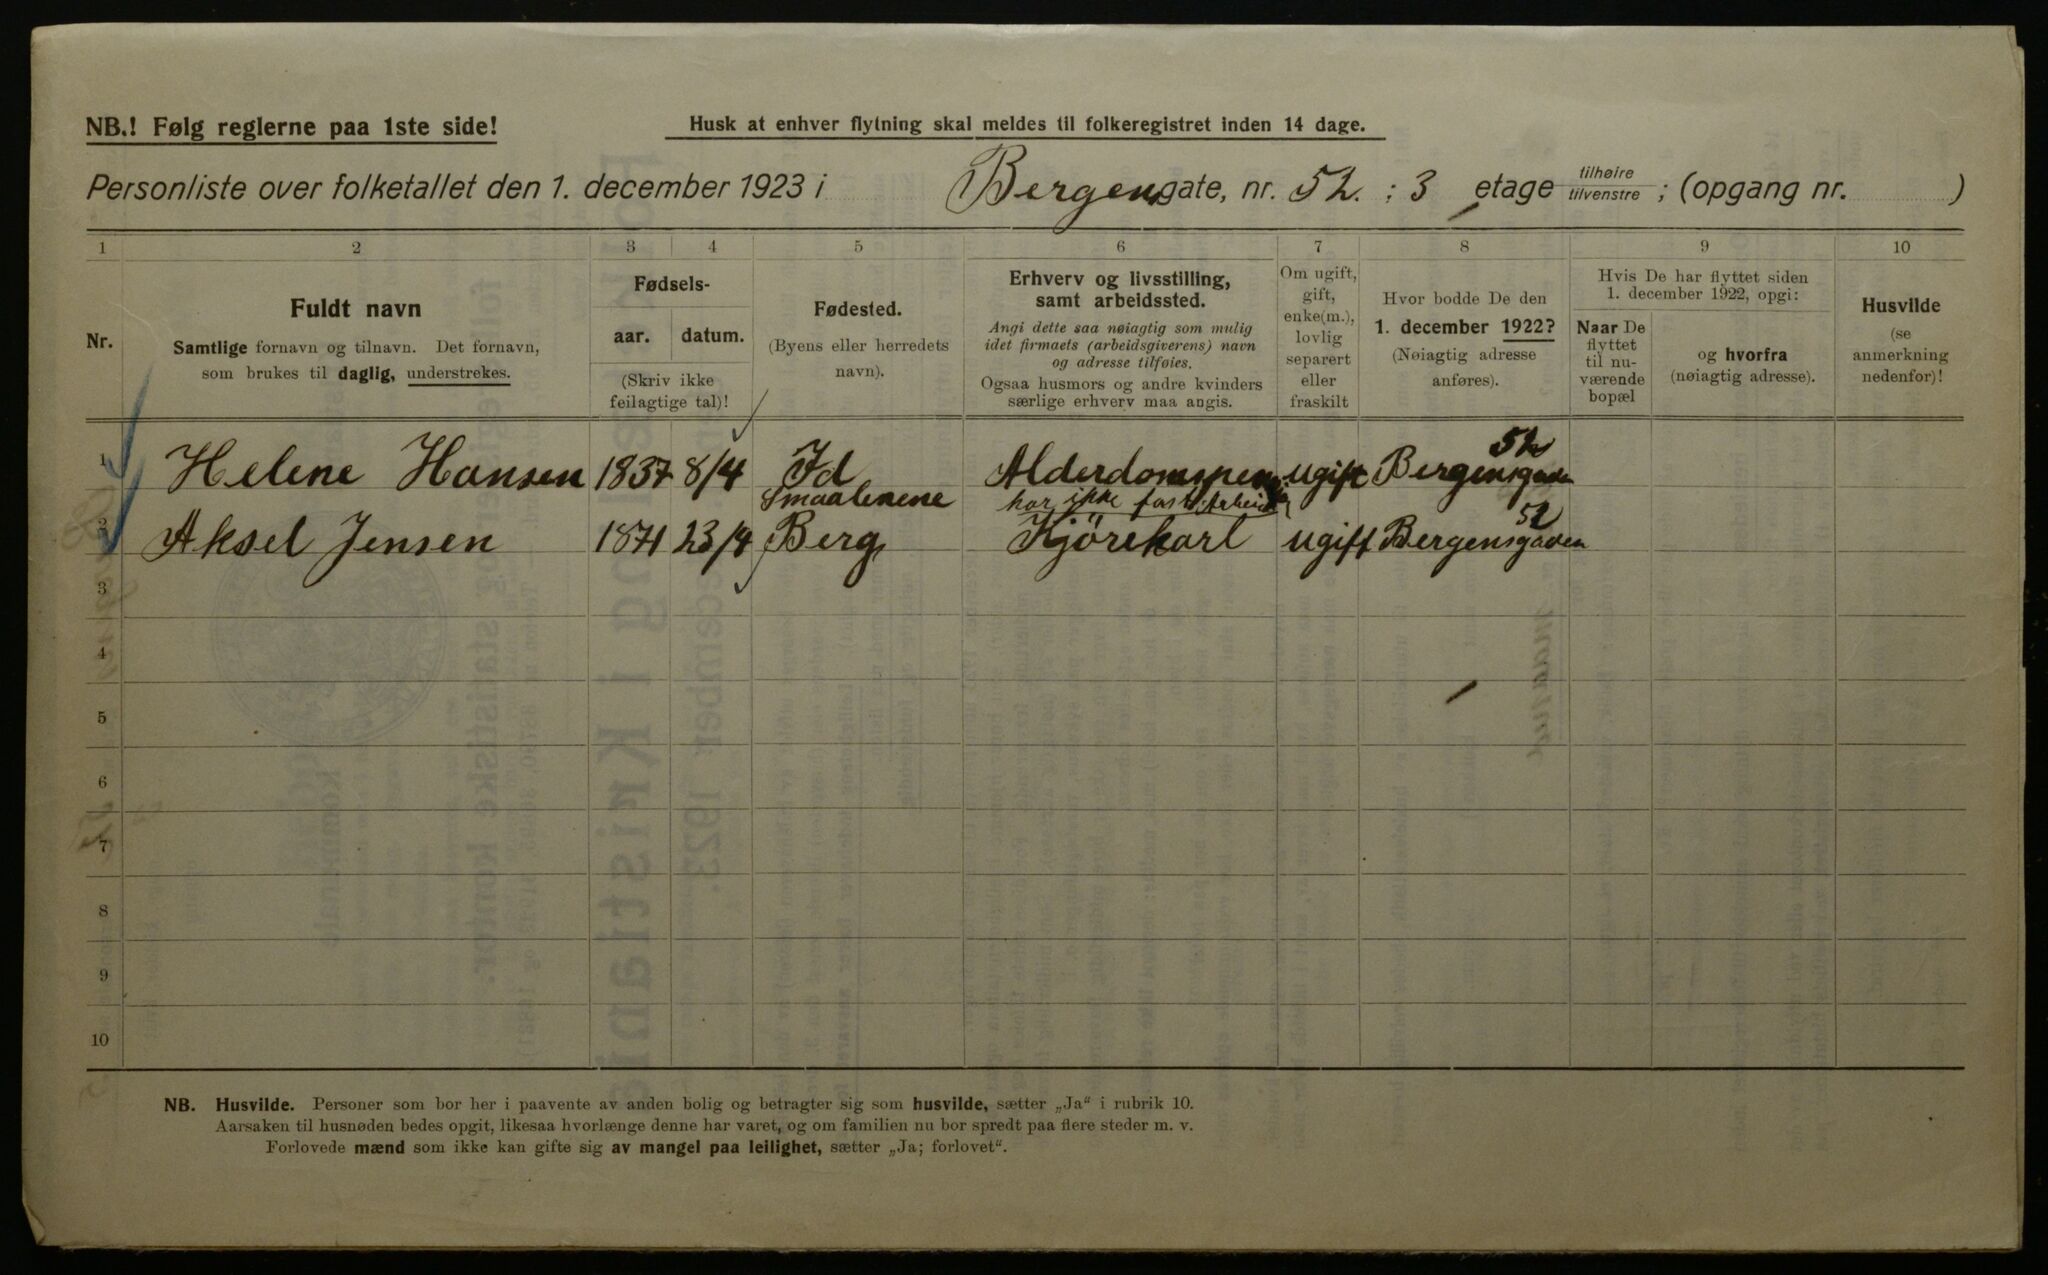 NB.! Følg reglerne paa 1ste side!
Husk at enhver flytning skal meldes til folkeregistret inden 14 dage.
Personliste over folketallet den 1. december 1923 i Bergensgate, nr. 52. ; 3 etage tilhøire tilvenstre ; (opgang nr. )
1 2 3 4 5 6 7 8 9 10
Nr.
Fuldt navn
Samtlige fornavn og tilnavn. Det fornavn,
som brukes til daglig, understrekes.
Fødsels-
aar. datum.
(Skriv ikke
feilagtige tal)!
Fødested.
(Byens eller herredets
navn).
Erhverv og livsstilling,
samt arbeidssted.
Angi dette saa nøiagtig som mulig
idet firmaets (arbeidsgiverens) navn
og adresse tilføies.
Ogsaa husmors og andre kvinders
særlige erhverv maa angis.
Om ugift,
gift,
enke(m.),
lovlig
separert
eller
fraskilt
Hvor bodde De den
1. december 1922?
(Nøiagtig adresse
anføres).
Hvis De har flyttet siden
1. december 1922, opgi:
Naar De
flyttet
til nu-
værende
bopæl
og hvorfra
(nøiagtig adresse).
Husvilde
(se
anmerkning
nedenfor)!
1 Helene Hansen 1837 8/4 Id Smaalenene Alderdomspen ugift Bergensgaden 52
har ikke fast Arbeid
2 Aksel Jensen 1871 23/4 Berg Kjörekarl ugift Bergensgaden 52
3
4
5
6
7
8
9
10
NB. Husvilde. Personer som bor her i paavente av anden bolig og betragter sig som husvilde, sætter „Ja“ i rubrik 10.
Aarsaken til husnøden bedes opgit, likesaa hvorlænge denne har varet, og om familien nu bor spredt paa flere steder m. v.
Forlovede mænd som ikke kan gifte sig av mangel paa leilighet, sætter „Ja; forlovet“.